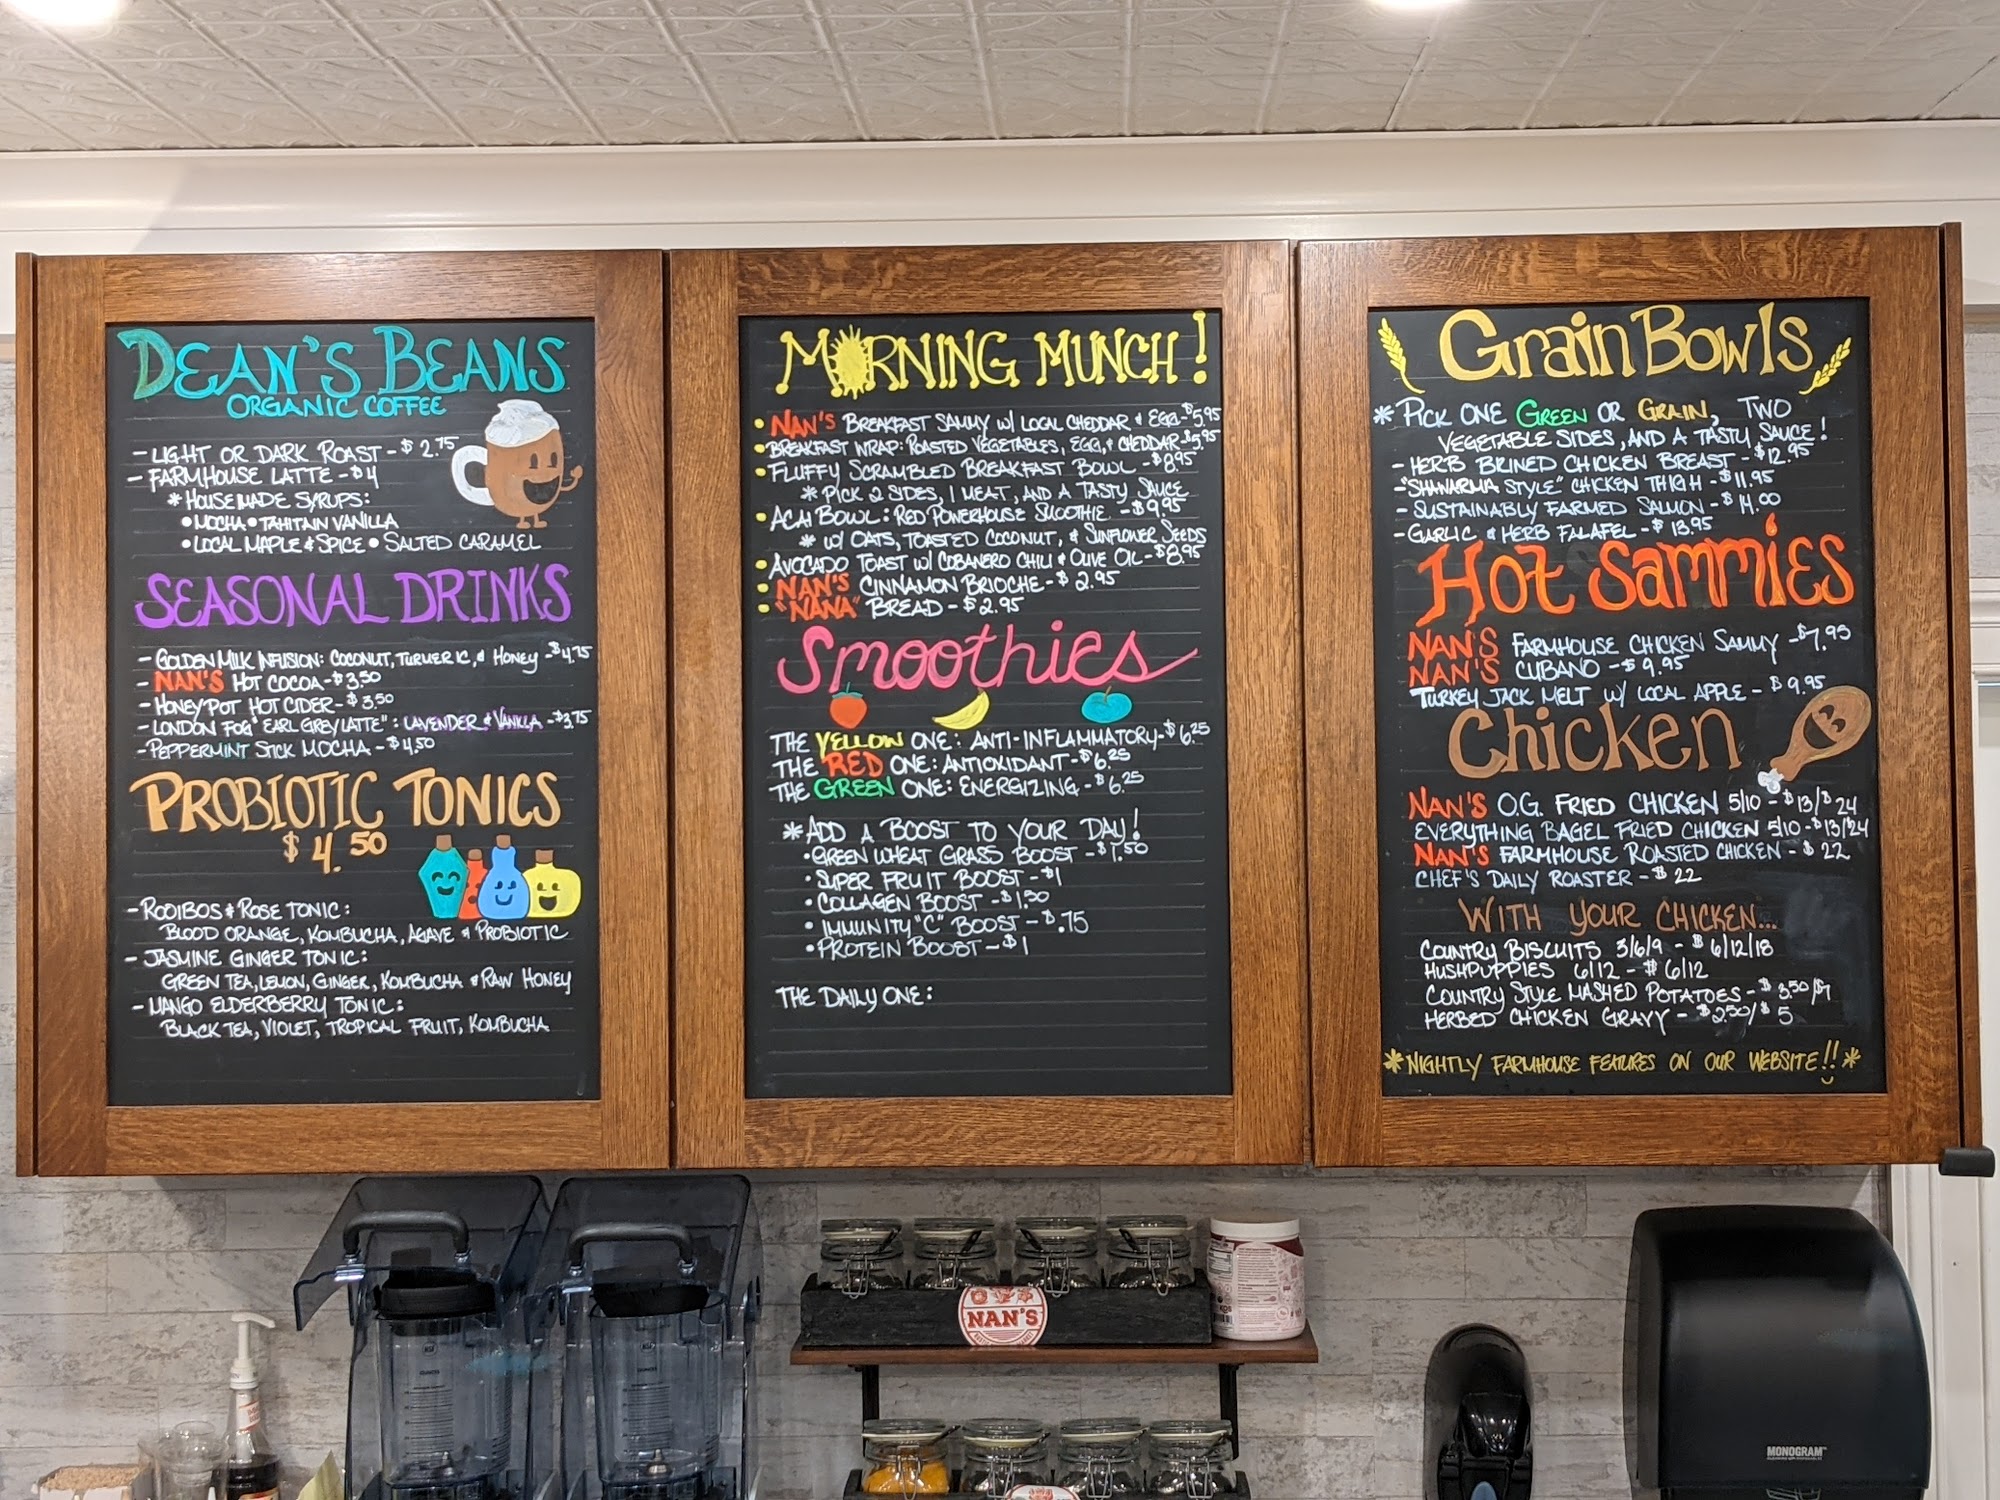 DEAN'S BEANS
ORGANIC COFFEE
- LIGHT OR DARK ROAST - $2.75
- FARMHOUSE LATTE - $4
* HOUSEMADE SYRUPS:
• MOCHA • TAHITAIN VANILLA
• LOCAL MAPLE & SPICE • SALTED CARAMEL
SEASONAL DRINKS
- GOLDEN MILK INFUSION: COCONUT, TURMERIC, & HONEY - $4.75
- NAN'S HOT COCOA - $3.50
- HONEY POT HOT CIDER - $3.50
- LONDON FOG "EARL GREY LATTE": LAVENDER & VANILLA - $3.75
- PEPPERMINT STICK MOCHA - $4.50
PROBIOTIC TONICS
$4.50
- ROOIBOS & ROSE TONIC:
BLOOD ORANGE, KOMBUCHA, AGAVE & PROBIOTIC
- JASMINE GINGER TONIC:
GREEN TEA, LEMON, GINGER, KOMBUCHA & RAW HONEY
- MANGO ELDERBERRY TONIC:
BLACK TEA, VIOLET, TROPICAL FRUIT, KOMBUCHA
MORNING MUNCH!
• NAN'S BREAKFAST SAMMY W/ LOCAL CHEDDAR & EGG - $5.95
• BREAKFAST WRAP: ROASTED VEGETABLES, EGG, & CHEDDAR $5.95
• FLUFFY SCRAMBLED BREAKFAST BOWL - $8.95
* PICK 2 SIDES, 1 MEAT, AND A TASTY SAUCE
• ACAI BOWL: RED POWERHOUSE SMOOTHIE - $9.95
* W/ OATS, TOASTED COCONUT, & SUNFLOWER SEEDS
• AVOCADO TOAST W/ COBANERO CHILI & OLIVE OIL - $8.95
• NAN'S CINNAMON BRIOCHE - $2.95
• "NANA" BREAD - $2.95
Smoothies
THE YELLOW ONE: ANTI-INFLAMMATORY - $6.25
THE RED ONE: ANTIOXIDANT - $6.25
THE GREEN ONE: ENERGIZING - $6.25
* ADD A BOOST TO YOUR DAY!
• GREEN WHEAT GRASS BOOST - $1.50
• SUPER FRUIT BOOST - $1
• COLLAGEN BOOST - $1.50
• IMMUNITY "C" BOOST - $.75
• PROTEIN BOOST - $1
THE DAILY ONE:
Grain Bowls
* PICK ONE GREEN OR GRAIN, TWO
VEGETABLE SIDES, AND A TASTY SAUCE!
- HERB BRINED CHICKEN BREAST - $12.95
- "SHAWARMA STYLE" CHICKEN THIGH - $11.95
- SUSTAINABLY FARMED SALMON - $14.00
- GARLIC & HERB FALAFEL - $13.95
Hot Sammies
NAN'S FARMHOUSE CHICKEN SAMMY - $7.95
NAN'S CUBANO - $9.95
TURKEY JACK MELT W/ LOCAL APPLE - $9.95
Chicken
NAN'S O.G. FRIED CHICKEN 5/10 - $13/$24
EVERYTHING BAGEL FRIED CHICKEN 5/10 - $13/24
NAN'S FARMHOUSE ROASTED CHICKEN - $22
CHEF'S DAILY ROASTER - $22
WITH YOUR CHICKEN...
COUNTRY BISCUITS 3/6/9 - $6/12/18
HUSHPUPPIES 6/12 - $6/12
COUNTRY STYLE MASHED POTATOES - $3.50/$7
HERBED CHICKEN GRAVY - $2.50/$5
* NIGHTLY FARMHOUSE FEATURES ON OUR WEBSITE!! *
NAN'S
MONOGRAM